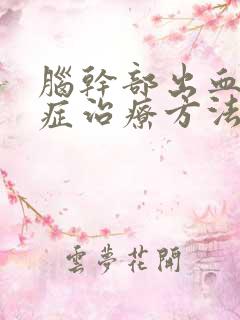 腦幹部出血
症治療方法
雲夢花開